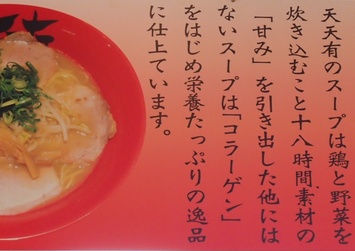 天天有のスープは鶏と野菜を
炊き込むこと十八時間素材の
「甘み」を引き出した他には
ないスープは「コラーゲン」
をはじめ栄養たっぷりの逸品
に仕上ています。